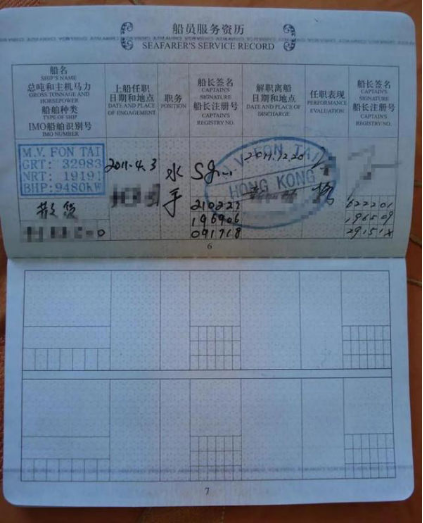 船员服务资历
SEAFARER'S SERVICE RECORD
船名
SHIP'S NAME
总吨和主机马力
GROSS TONNAGE AND
HORSEPOWER
船舶种类
TYPE OF SHIP
IMO船舶识别号
IMO NUMBER
上船任职
日期和地点
DATE AND PLACE
OF ENGAGEMENT
职务
POSITION
船长签名
CAPTAIN'S
SIGNATURE
船长注册号
CAPTAIN'S
REGISTRY NO.
解职离船
日期和地点
DATE AND PLACE OF
DISCHARGE
任职表现
PERFORMANCE
EVALUATION
船长签名
CAPTAIN'S
SIGNATURE
船长注册号
CAPTAIN'S
REGISTRY NO.
M.V. FON TAI
GRT: 32983
NRT: 19191
BHP: 9480kW
散货
2011.4.3
水手
210223
196906
M.V. FON TAI
HONG KONG
622201
6
7